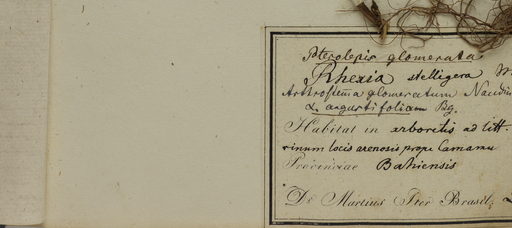 Pterolepis glomerata
Rhexia stelligera M
Arthrostema glomeratum Naudin
α. angustifolium Bg.
Habitat in arboretis ad litt.
rinum locis arenosis prope Camamu
Provinciae Bahiensis
Dr Martius Iter Brasil.